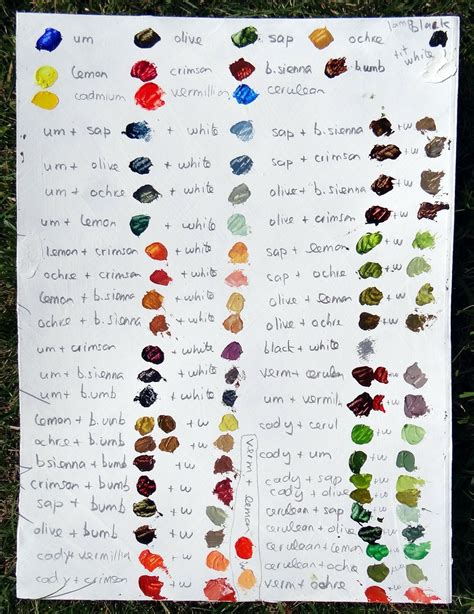 um olive sap ochre lamp black
lemon crimson b.sienna b.umb tit white
cadmium vermillion cerulean
um + sap + white
um + olive + white
um + ochre + white
um + lemon + white
lemon + crimson + white
ochre + crimson + white
lemon + b.sienna + white
ochre + b.sienna + white
um + crimson + white
um + b.sienna + white
um + b.umb + white
lemon + b.umb + w
ochre + b.umb + w
b.sienna + bumb + w
crimson + bumb + w
sap + bumb + w
olive + bumb + w
cady + vermillio
cady + crimson + w
verm lemon
sap + b.sienna + w
sap + crimson + w
olive + b.sienna + w
olive + crimson + w
sap + lemon + w
sap + ochre + w
olive + lemon + w
olive + ochre + w
black + white
verm + cerulean + w
um + vermilli + w
cady + cerul + w
cady + um + w
cady + sap + w
cady + olive + w
cerulean + sap + w
cerulean + olive + w
cerulean + lemon + w
cerulean + ochre + w
verm + ochre + w